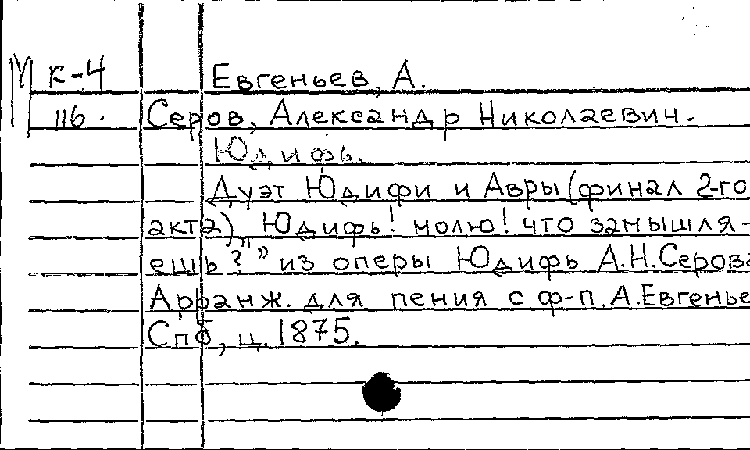 М К-4 Евгеньев, А.
116. Серов, Александр Николаевич.
Юдифь.
Дуэт Юдифи и Авры (финал 2-го
акта) „Юдифь! молю! что замышля-
ешь?" из оперы Юдифь А.Н.Серова
Арранж. для пения с ф-п. А.Евгенье
Спб, ц. 1875.